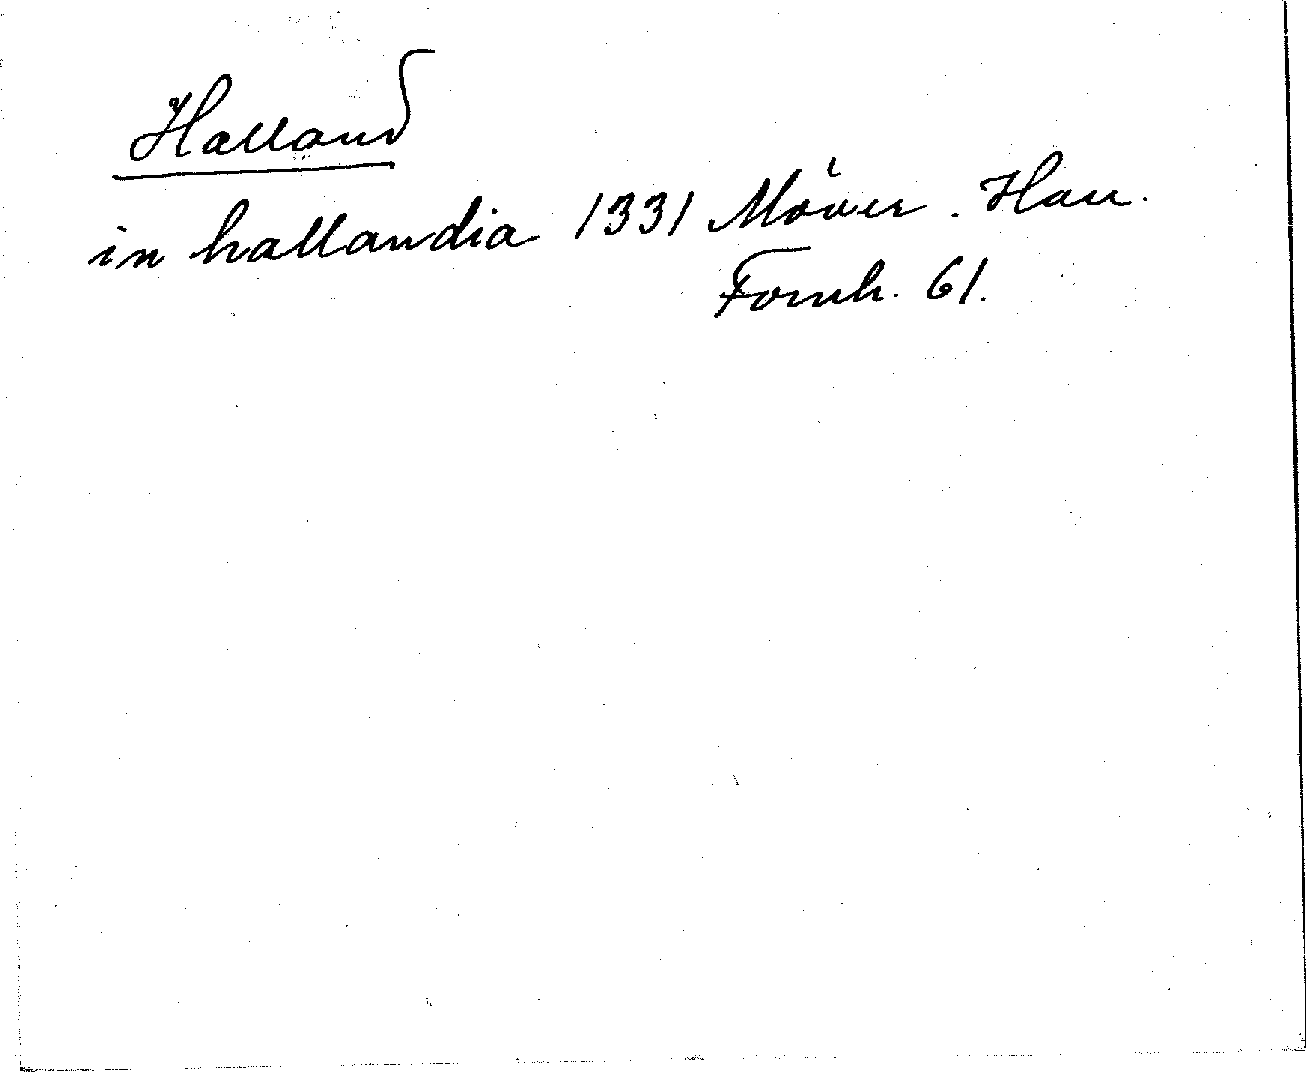 Halland
in hallandia 1331 Möller. Hall.
Fornh. 61.